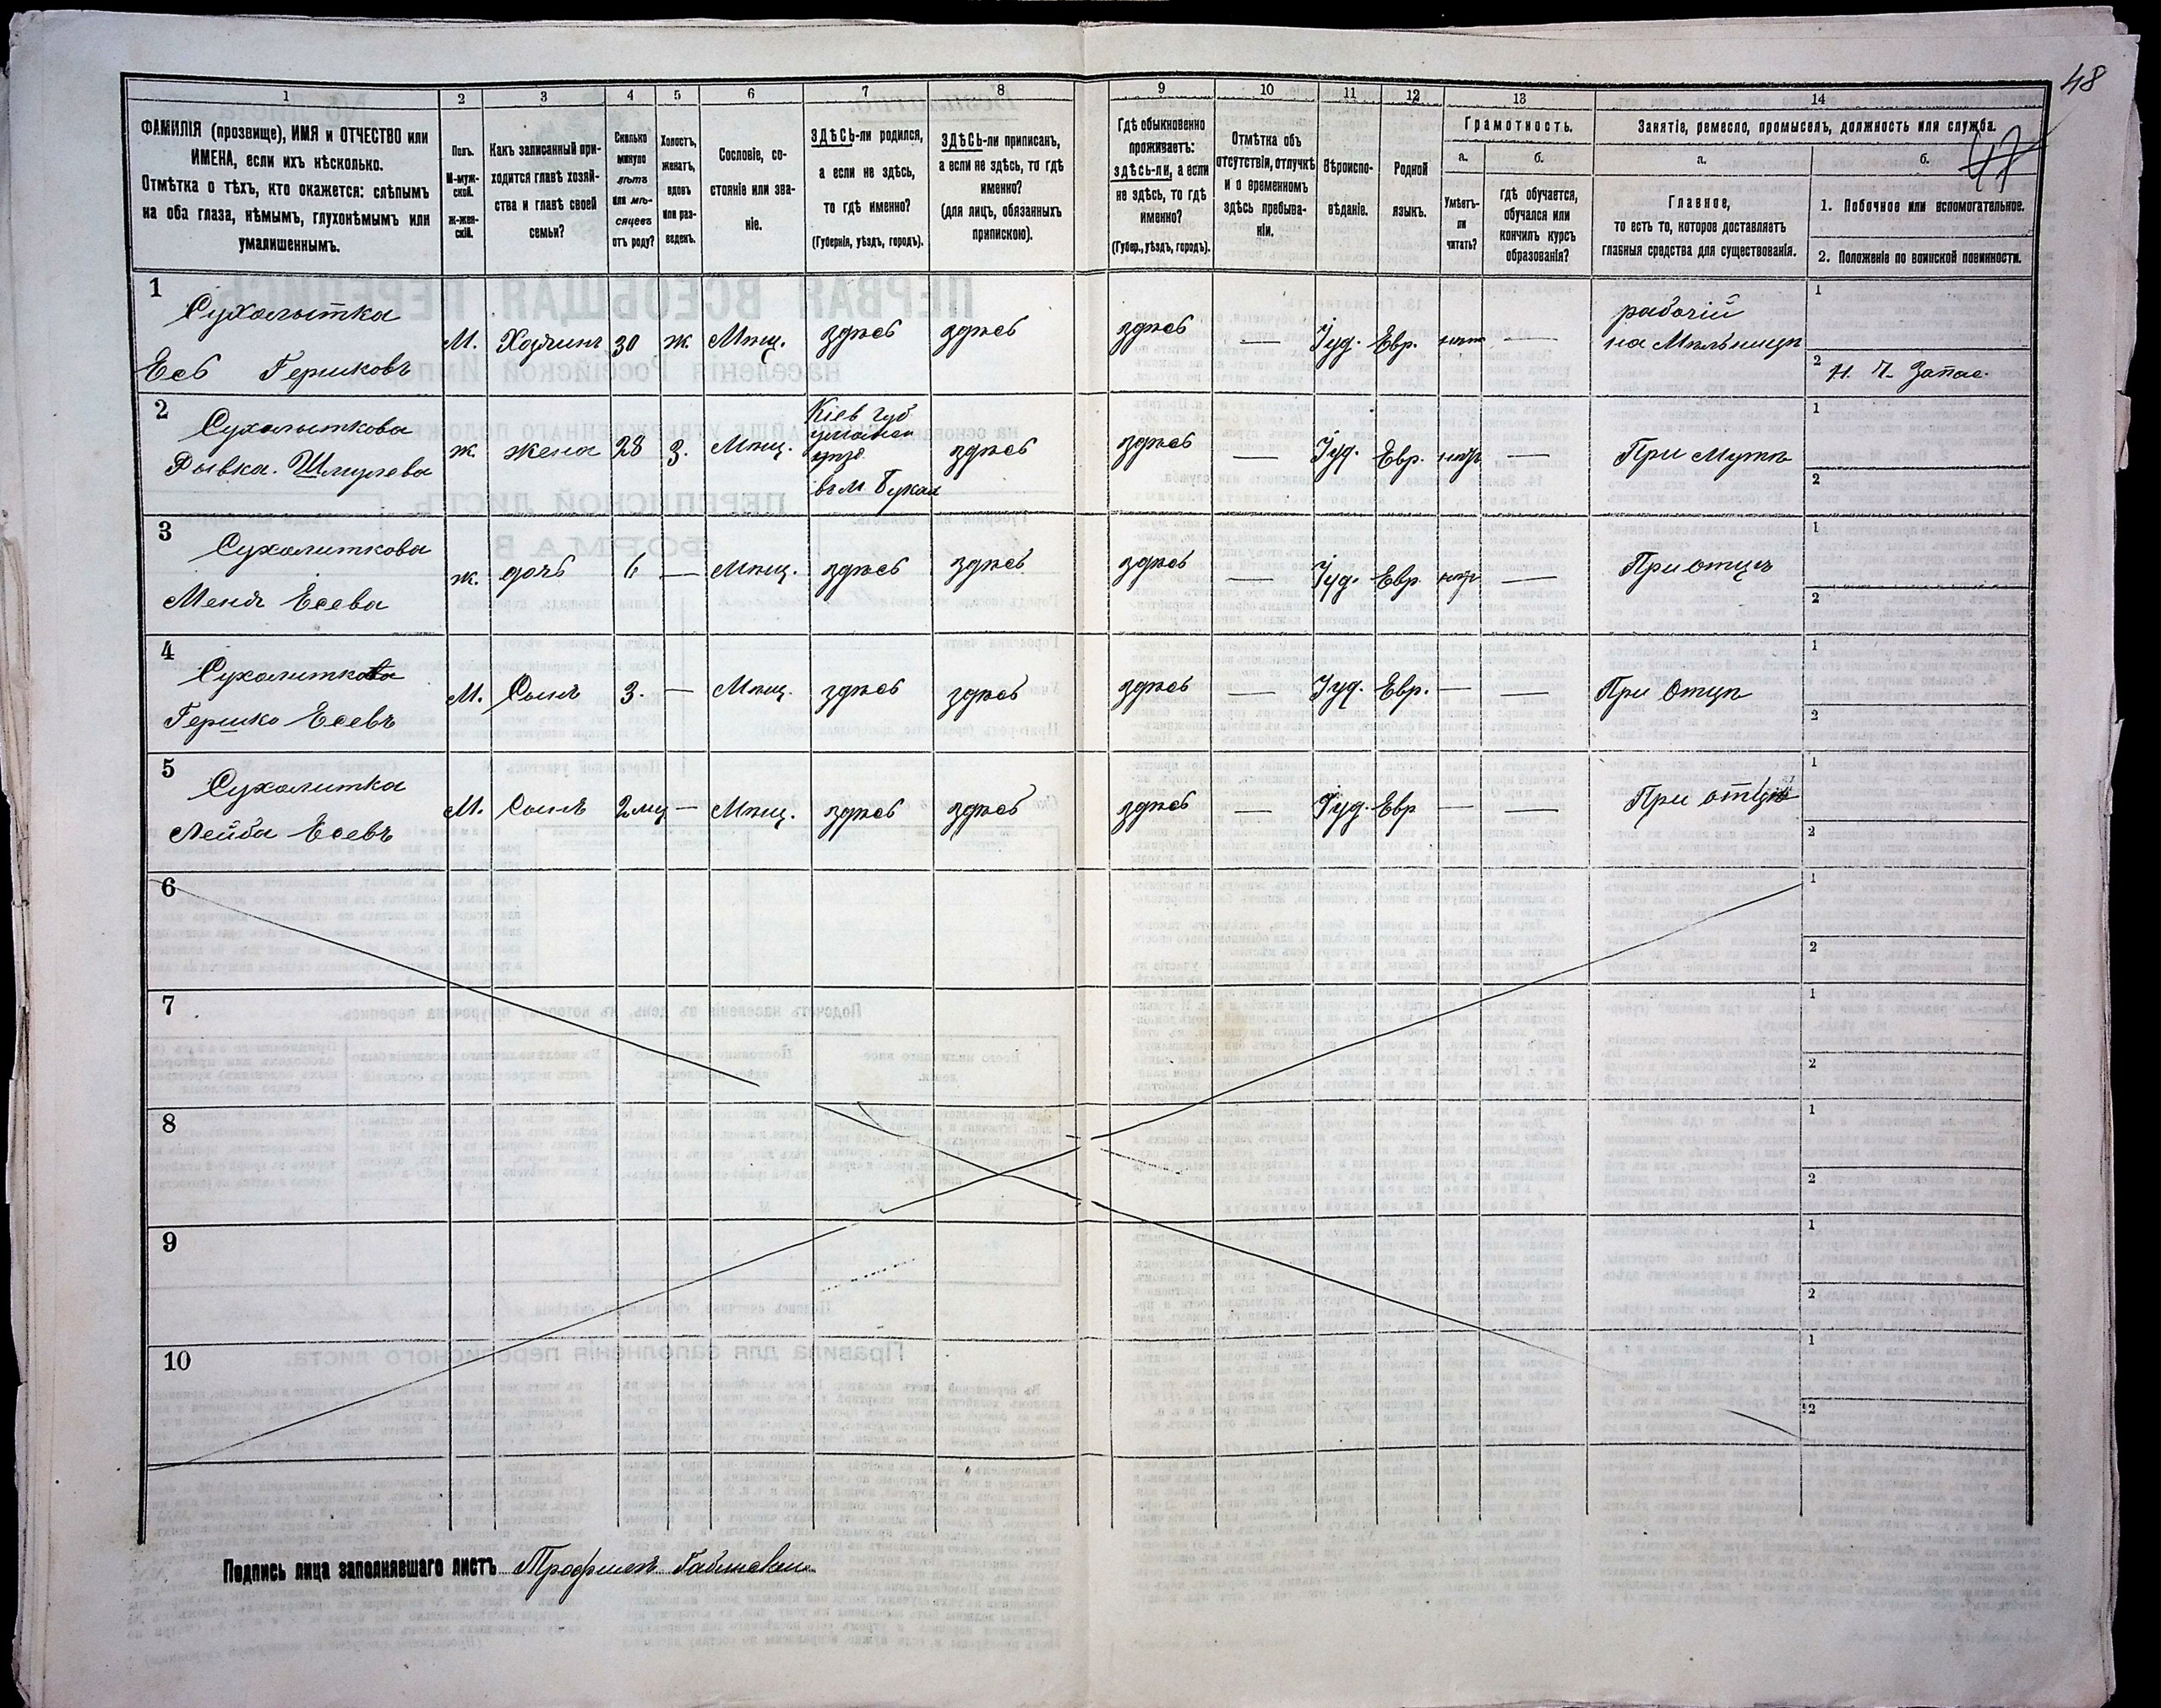 48
47
1 2 3 4 5 6 7 8 9 10 11 12 13 14
ФАМИЛІЯ (прозвище), ИМЯ и ОТЧЕСТВО или
ИМЕНА, если ихъ нѣсколько.
Отмѣтка о тѣхъ, кто окажется: слѣпымъ
на оба глаза, нѣмымъ, глухонѣмымъ или
умалишеннымъ.
Полъ.
М-муж-
ской.
ж-жен-
скій.
Какъ записанный при-
ходится главѣ хозяй-
ства и главѣ своей
семьи?
Сколько
минуло
лѣтъ
или мѣ-
сяцевъ
отъ роду?
Холостъ,
женатъ,
вдовъ
или раз-
веденъ.
Сословіе, со-
стояніе или зва-
ніе.
ЗДѢСЬ-ли родился,
а если не здѣсь,
то гдѣ именно?
(Губернія, уѣздъ, городъ).
ЗДѢСЬ-ли приписанъ,
а если не здѣсь, то гдѣ
именно?
(для лицъ, обязанныхъ
припискою).
Гдѣ обыкновенно
проживаетъ:
здѣсь-ли, а если
не здѣсь, то гдѣ
именно?
(Губер., уѣздъ, городъ).
Отмѣтка объ
отсутствіи, отлучкѣ
и о временномъ
здѣсь пребыва-
ніи.
Вѣроиспо-
вѣданіе.
Родной
языкъ.
Грамотность.
а.
б.
Умѣетъ-
ли
читать?
гдѣ обучается,
обучался или
кончилъ курсъ
образованія?
Занятіе, ремесло, промыселъ, должность или служба.
а.
б.
Главное,
то есть то, которое доставляетъ
главныя средства для существованія.
1. Побочное или вспомогательное.
2. Положеніе по воинской повинности.
1
Сухолытка
Есь Гершковъ
М. Хозяинъ 30 ж. Мѣщ. здѣсь здѣсь здѣсь — Іуд. Евр. нѣтъ —
рабочій
на Мельницѣ
1
2 Н. Ч. Запас.
2
Сухолыткова
Рывка Шмулева
ж. жена 28 З. Мѣщ.
Кіев губ.
уманск
уѣзд.
въ м. Буках
здѣсь здѣсь — Іуд. Евр. нѣтъ — При мужѣ
1
2
3
Сухолиткова
Меня Есева
ж. дочь 6 — Мѣщ. здѣсь здѣсь здѣсь — Іуд. Евр нѣтъ — При отцѣ
1
2
4
Сухолитка
Гершко Есевъ
М. Сынъ 3. — Мѣщ. здѣсь здѣсь здѣсь — Іуд. Евр. — — При Отцѣ
1
2
5
Сухолитка
Лейба Есевъ
М. Сынъ 2 мц — Мѣщ. здѣсь здѣсь здѣсь — Іуд. Евр — — При отцѣ
1
2
6
1
2
7
1
2
8
1
2
9
1
2
10
1
2
Подпись лица заполнявшаго листъ Трофимъ